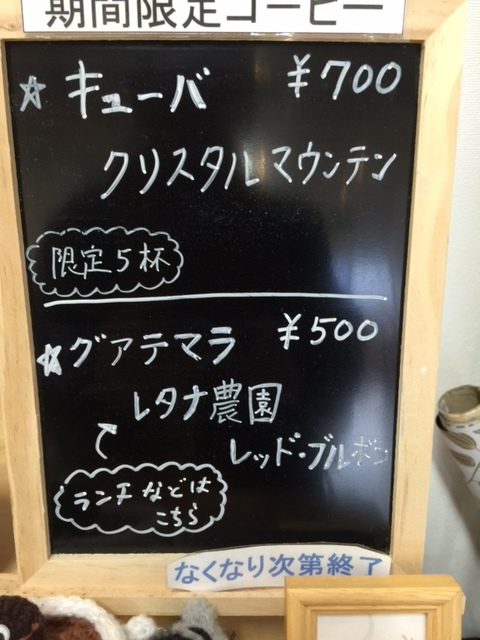 期間限定コーヒー
☆キューバ ¥700
クリスタルマウンテン
限定5杯
☆グァテマラ ¥500
レタナ農園
レッド・ブルボン
ランチなどは
こちら
なくなり次第終了